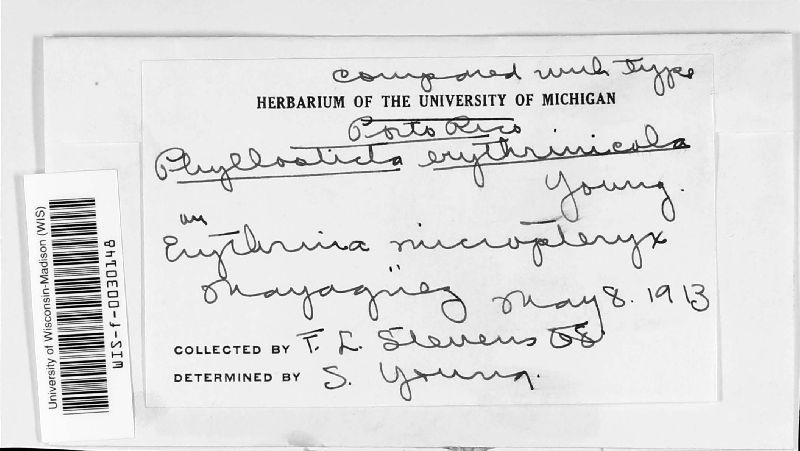 compared with type
HERBARIUM OF THE UNIVERSITY OF MICHIGAN
Porto Rico
Phyllosticta erythrinicola
Young.
on
Erythrina micropteryx
Mayagüez May 8. 1913
COLLECTED BY F. L. Stevens
DETERMINED BY S. Young.
University of Wisconsin-Madison (WIS)
WIS-f-0030148